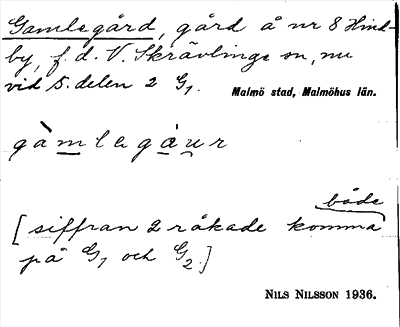 Gamlegård, gård å nr 8 Hind-
by, f.d. V. Skrävlinge sn, nu
vid S. delen 2 G1.
Malmö stad, Malmöhus län.
gàmlegáur
både
[siffran 2 råkade komma
på G1 och G2.]
NILS NILSSON 1936.